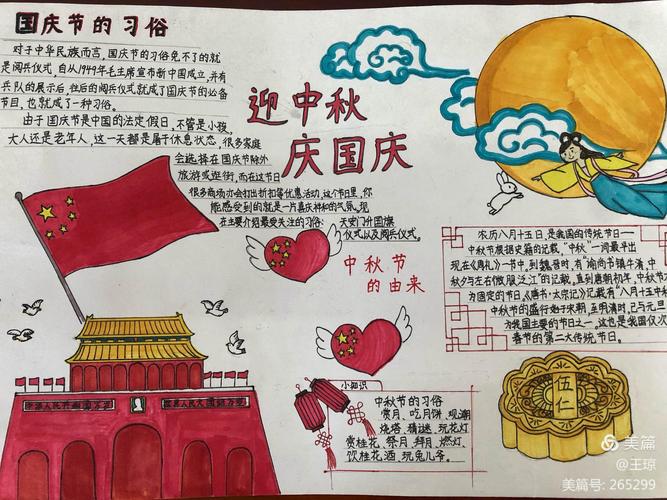 国庆节的习俗
对于中华民族而言，国庆节的习俗免不了的就
是阅兵仪式，自从1949年毛主席宣布新中国成立，并有
兵队的展示后，往后的阅兵仪式就成了国庆节的必备
节目，也就成了一种习俗。
由于国庆节是中国的法定假日，不管是小孩，
大人还是老年人，这一天都是属于休息状态，很多家庭
会选择在国庆节除外
旅游或逛街，而在这节日
很多商场亦会打出折扣等优惠活动，这个节日里，你
能感受到的就是一片喜庆祥和的气氛。现
在主要介绍最受关注的习俗：天安门升国旗
仪式以及阅兵仪式。
迎中秋
庆国庆
中秋节
的由来
农历八月十五日，是我国的传统节日—
中秋节根据史籍的记载，“中秋”一词最早出
现在《周礼》一书中，到魏晋时，有“谕尚书镇牛渚，中
秋夕与左右微服泛江”的记载，直到唐朝初年，中秋节
为固定的节日，《唐书·太宗记》记载有“八月十五中秋
中秋节的盛行始于宋朝，至明清时，已与元旦
为我国主要的节日之一，这也是我国仅次
春节的第二大传统节日。
小知识
中秋节的习俗
赏月、吃月饼、观潮
烧塔、猜谜、玩花灯
赏桂花、祭月、拜月、燃灯、
饮桂花酒、玩兔儿爷。
伍
仁
美篇
@王琼
美篇号: 265299